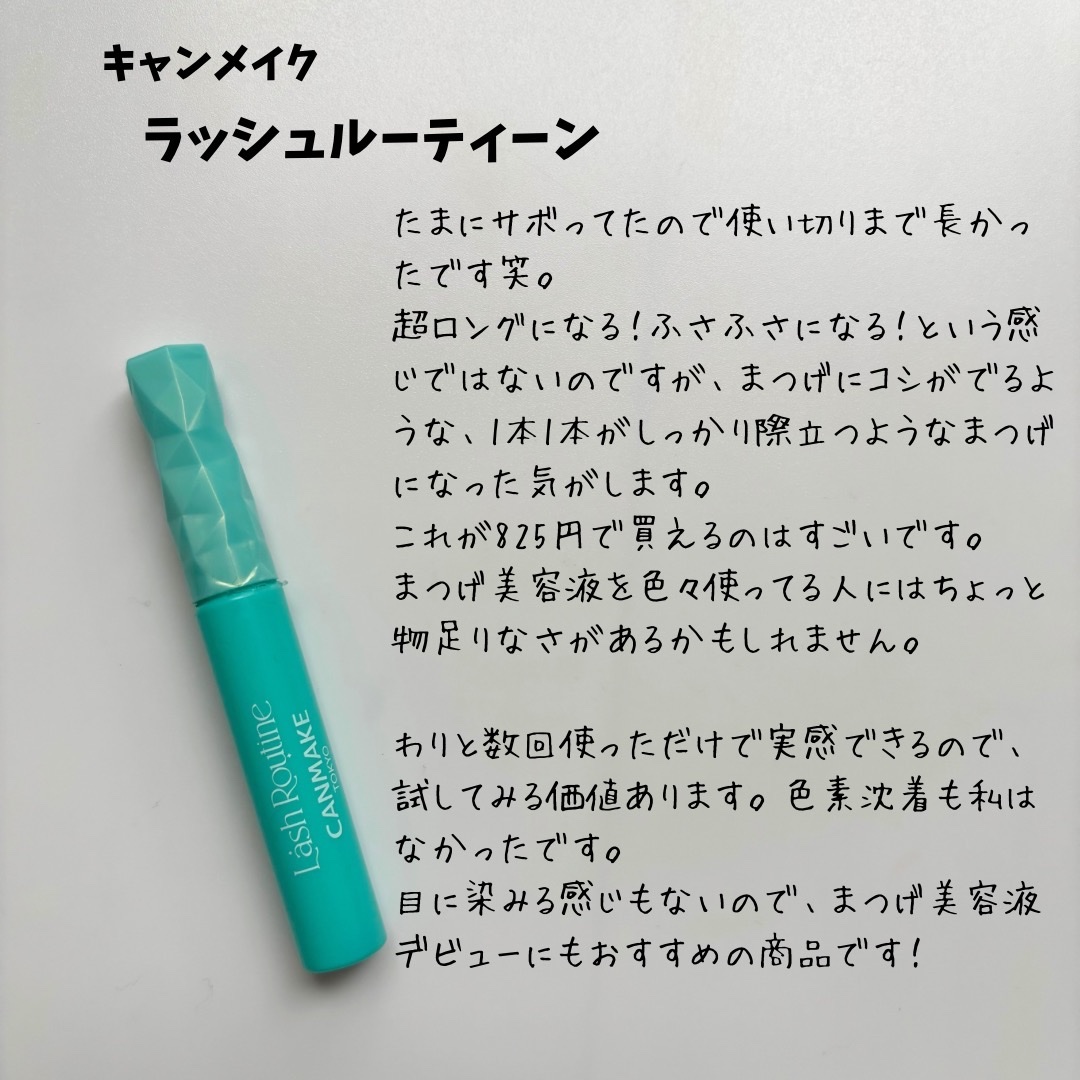 キャンメイク
ラッシュルーティーン
たまにサボってたので使い切りまで長かっ
たです笑。
超ロングになる!ふさふさになる!という感
じではないのですが、まつげにコシがでるよ
うな、1本1本がしっかり際立つようなまつげ
になった気がします。
これが825円で買えるのはすごいです。
まつげ美容液を色々使ってる人にはちょっと
物足りなさがあるかもしれません。
わりと数回使っただけで実感できるので、
試してみる価値あります。色素沈着も私は
なかったです。
目に染みる感じもないので、まつげ美容液
デビューにもおすすめの商品です!
Lash Routine
CANMAKE
TOKYO